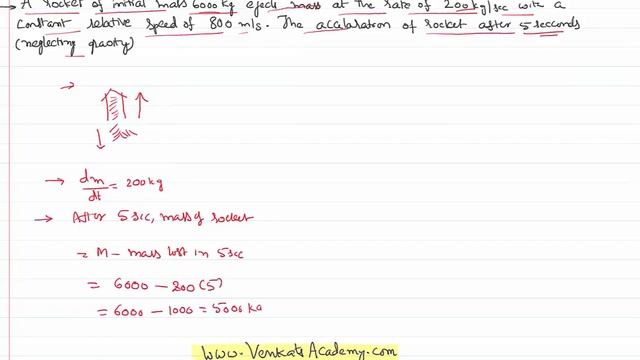 → A rocket of initial mass 6000 kg ejects mass at the rate of 200 kg/sec with a
Constant relative speed of 800 m/s. The acceleration of rocket after 5 seconds
(neglecting gravity)
→
→ dm/dt = 200 kg
→ After 5 sec, mass of rocket
= M - mass lost in 5 sec
= 6000 - 200 (5)
= 6000 - 1000 = 5000 kg
www.VenkatsAcademy.com